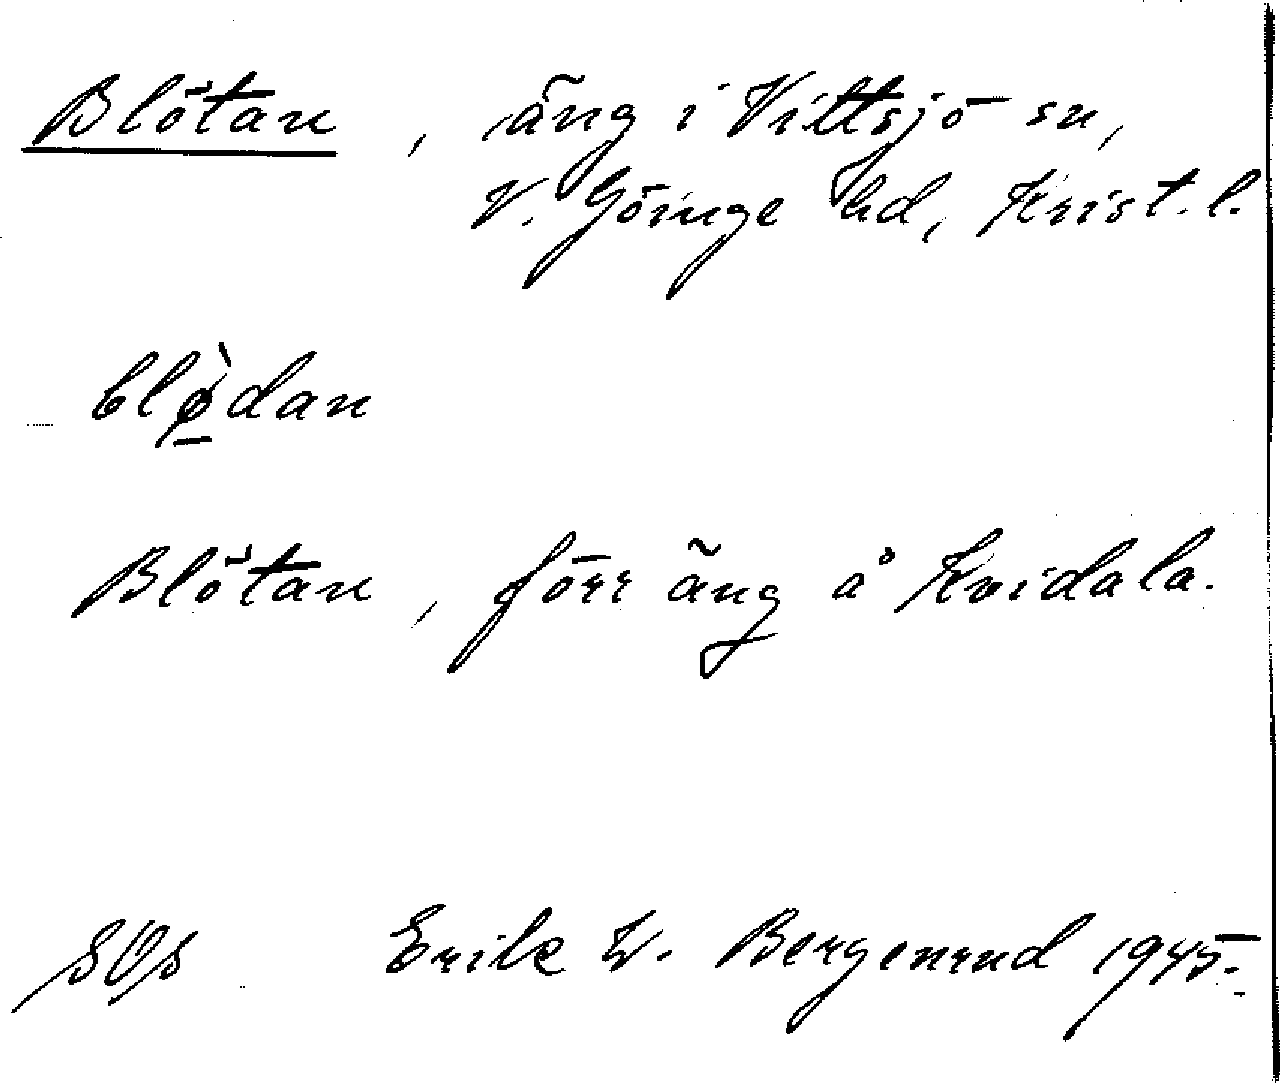 Blötan, äng i Vittsjö sn,
V. Göinge hd, Krist. l.
blø̠̀dan
Blötan, förr äng å Kvidala.
SOS Erik W. Bergenrud 1945.